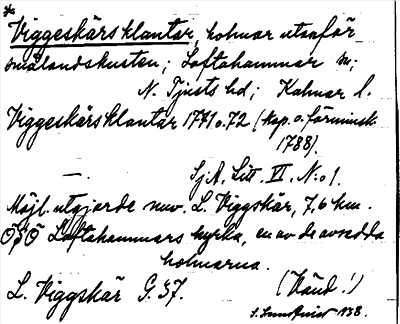 Viggeskärsklantar holmar utanför
smålandskusten; Loftahammar sn;
N. Tjusts hd; Kalmar l.
Viggeskärsklantar 1771 o. 72 (kop. o. förminsk.
1788).
— . Sj. A. Litt. VI. N:o 1.
Möjl. utgjorde nuv. L. Viggskär, 7,6 km.
OSO Loftahammars kyrka, en av de avsedda
holmarna.
L. Viggskär G. 37. (Känd!)
S. Lundkvist 1938.